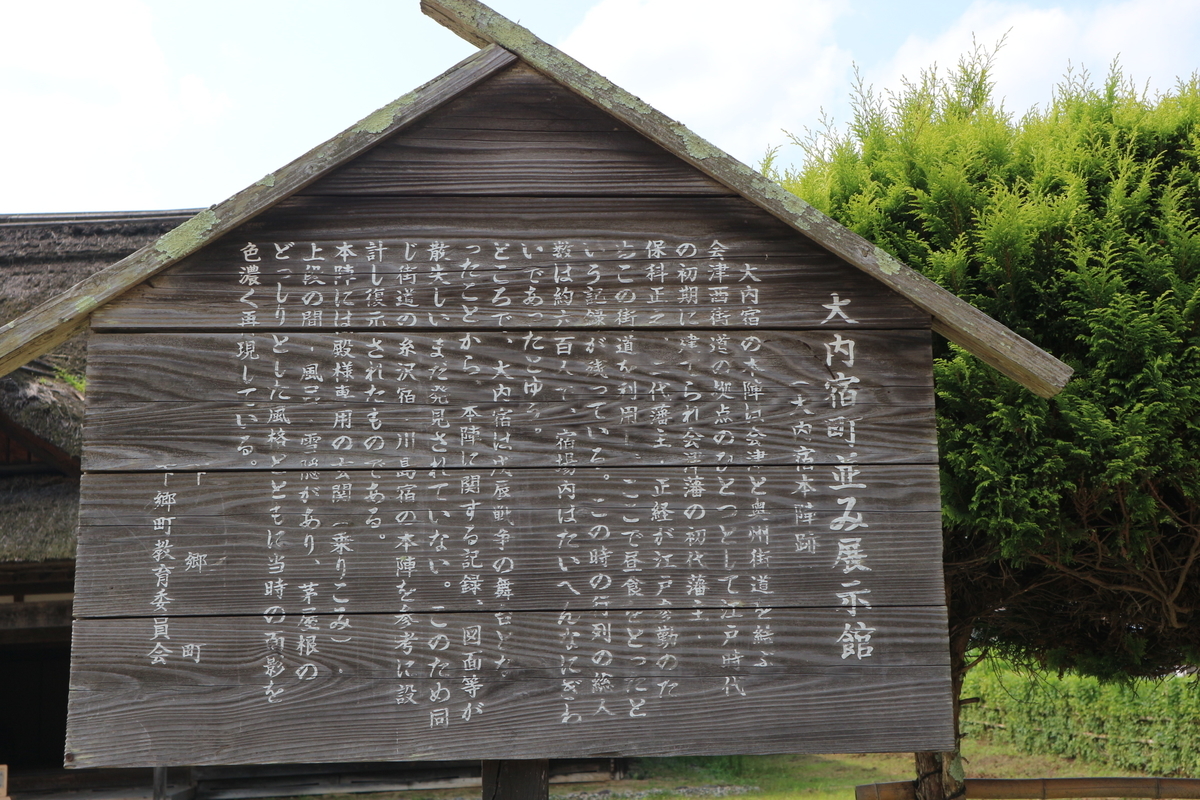 大内宿町並み展示館
(大内宿本陣跡)
大内宿の本陣は会津と奥州街道を結ぶ
会津西街道の拠点のひとつとして江戸時代
の初期に建てられ会津藩の初代藩主、
保科正之、二代藩主、正経が江戸参勤のた
めこの街道を利用し、ここで昼食をとったと
いう記録が残っている。この時の行列の総人
数は約六百人で、宿場内はたいへんなにぎわ
いであったとゆう。
ところで、大内宿は戊辰戦争の舞台とな
ったことから、本陣に関する記録、図面等が
散失しいまだ発見されていない。このため同
じ街道の糸沢宿、川島宿の本陣を参考に設
計し復示されたものである。
本陣には殿様専用の玄関(乗りこみ)、
上段の間、風呂、雪隠があり、茅屋根の
どっしりとした風格とともに当時の面影を
色濃く再現している。
下郷町
下郷町教育委員会